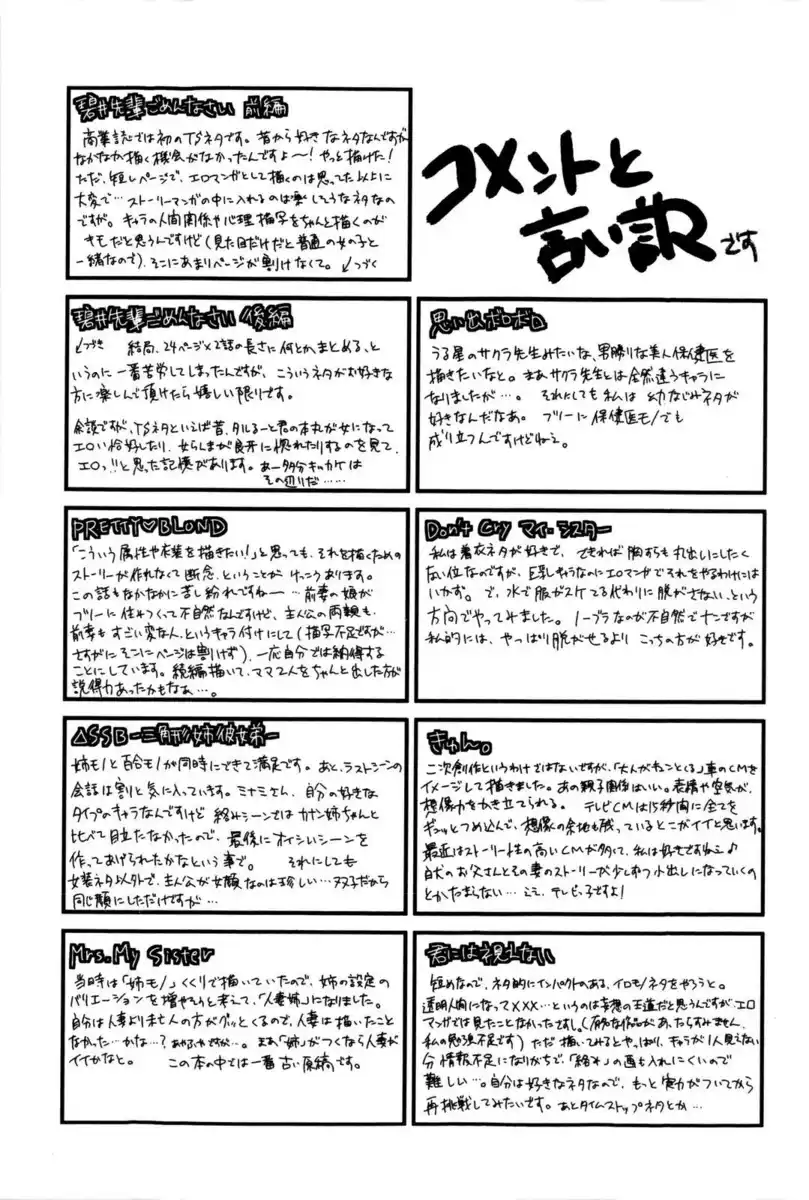 コメントと
言い訳です
碧井先輩ごめんなさい 前編
商業誌では初のTSネタです。昔から好きなネタなんですが
なかなか描く機会がなかったんですよ～!やっと描けた!
ただ、短いページで、エロマンガとして描くのは思ってた以上に
大変で…ストーリーマンガの中に入れるのは楽しそうなネタなの
ですが。キャラの人間関係や心理描写をちゃんと描くのが
キモだと思うんですけど(見た目だけだと普通の女の子と
一緒なので)、そこにあまりページが割けなくて。↙つづく
碧井先輩ごめんなさい 後編
↙つづき 結局、24ページ×2話の長さに何とかまとめる、と
いうのに一番苦労してしまったんですが、こういうネタがお好きな
方に楽しんで頂けたら嬉しい限りです。
余談ですが、TSネタといえば昔、タルるート君の本丸が女になって
エロい恰好したり、女らんまが良牙に惚れたりするのを見て、
エロっ!!と思った記憶があります。あー多分キッカケは
その辺りだ……
思い出ボロボロ
うる星のサクラ先生みたいな、男勝りな美人保健医を
描きたいなと。まあサクラ先生とは全然違うキャラに
なりましたが…。それにしても私は幼なじみネタが
好きなんだなあ。フツーに保健医モノでも
成り立つんですけどねえ。
PRETTY♡BLOND
「こういう属性や衣装を描きたい!」と思っても、それを描くための
ストーリーが作れなくて断念、ということがけっこうあります。
この話もなかなかに苦し紛れですねー…前妻の娘が
フツーに住みつくって不自然なんですけど、主人公の両親も、
前妻もすごい変な人、というキャラ付けにして(描写不足ですが…
さすがにそこにページは割けず)、一応自分では納得する
ことにしています。続編描いて、ママ2人をちゃんと出した方が
説得力あったかもなあ…。
Don't Cry マイ・シスター
私は着衣ネタが好きで、できれば胸すらも丸出しにしたく
ない位なのですが、巨乳キャラなのにエロマンガでそれをやるわけには
いかず。で、水で服がスケてる代わりに脱がさない、という
方向でやってみました。ノーブラなのが不自然でナンですが
私的には、やっぱり脱がせるよりこっちの方が好きです。
△SSB-三角形姉彼女弟-
姉モノと百合モノが同時にできて満足です。あと、ラストシーンの
会話は割と気に入っています。ミナミさん、自分の好きな
タイプのキャラなんですけど絡みシーンではカナン姉ちゃんと
比べて目立たなかったので、最後にオイシイシーンを
作ってあげられたかなという事で。それにしても
女装ネタ以外で、主人公が女顔なのは珍しい…双子だから
同じ顔にしただけですが…
きゅん。
二次創作というわけではないですが、「大人がキュンとくる」車のCMを
イメージして描きました。あの親子関係はいい。表情や空気が、
想像力をかき立てられる。テレビCMは15秒間に全てを
ギュッとつめ込んで、想像の余地も残っているとこがイイと思います。
最近はストーリー性の高いCMが多くて、私は好きですねえ♪
白犬のお父さんとその妻のストーリーが少しずつ小出しになっていくの
とかたまらない…ええ、テレビっ子ですよ!
Mrs. My Sister
当時は「姉モノ」くくりで描いていたので、姉の設定の
バリエーションを増やそうと考えて、「人妻姉」になりました。
自分は人妻より未亡人の方がグッとくるので、人妻は描いたこと
なかった…かな…?あやふやですが…。まあ「姉」がつくなら人妻が
イイかなと。この本の中では一番古い原稿です。
君には視えない
短めなので、ネタ的にインパクトのある、イロモノネタをやろうと。
透明人間になって×××…というのは妄想の王道だと思うんですが、エロ
マンガでは見たことなかったですし、(有名な作品があったらすみません、
私の勉強不足です)ただ描いてみるとやっぱり、キャラが1人見えない
分情報不足になりがちで、「絡み」の画も入れにくいので
難しい…。自分は好きなネタなので、もっと実力がついてから
再挑戦してみたいです。あとタイムストップネタとか…